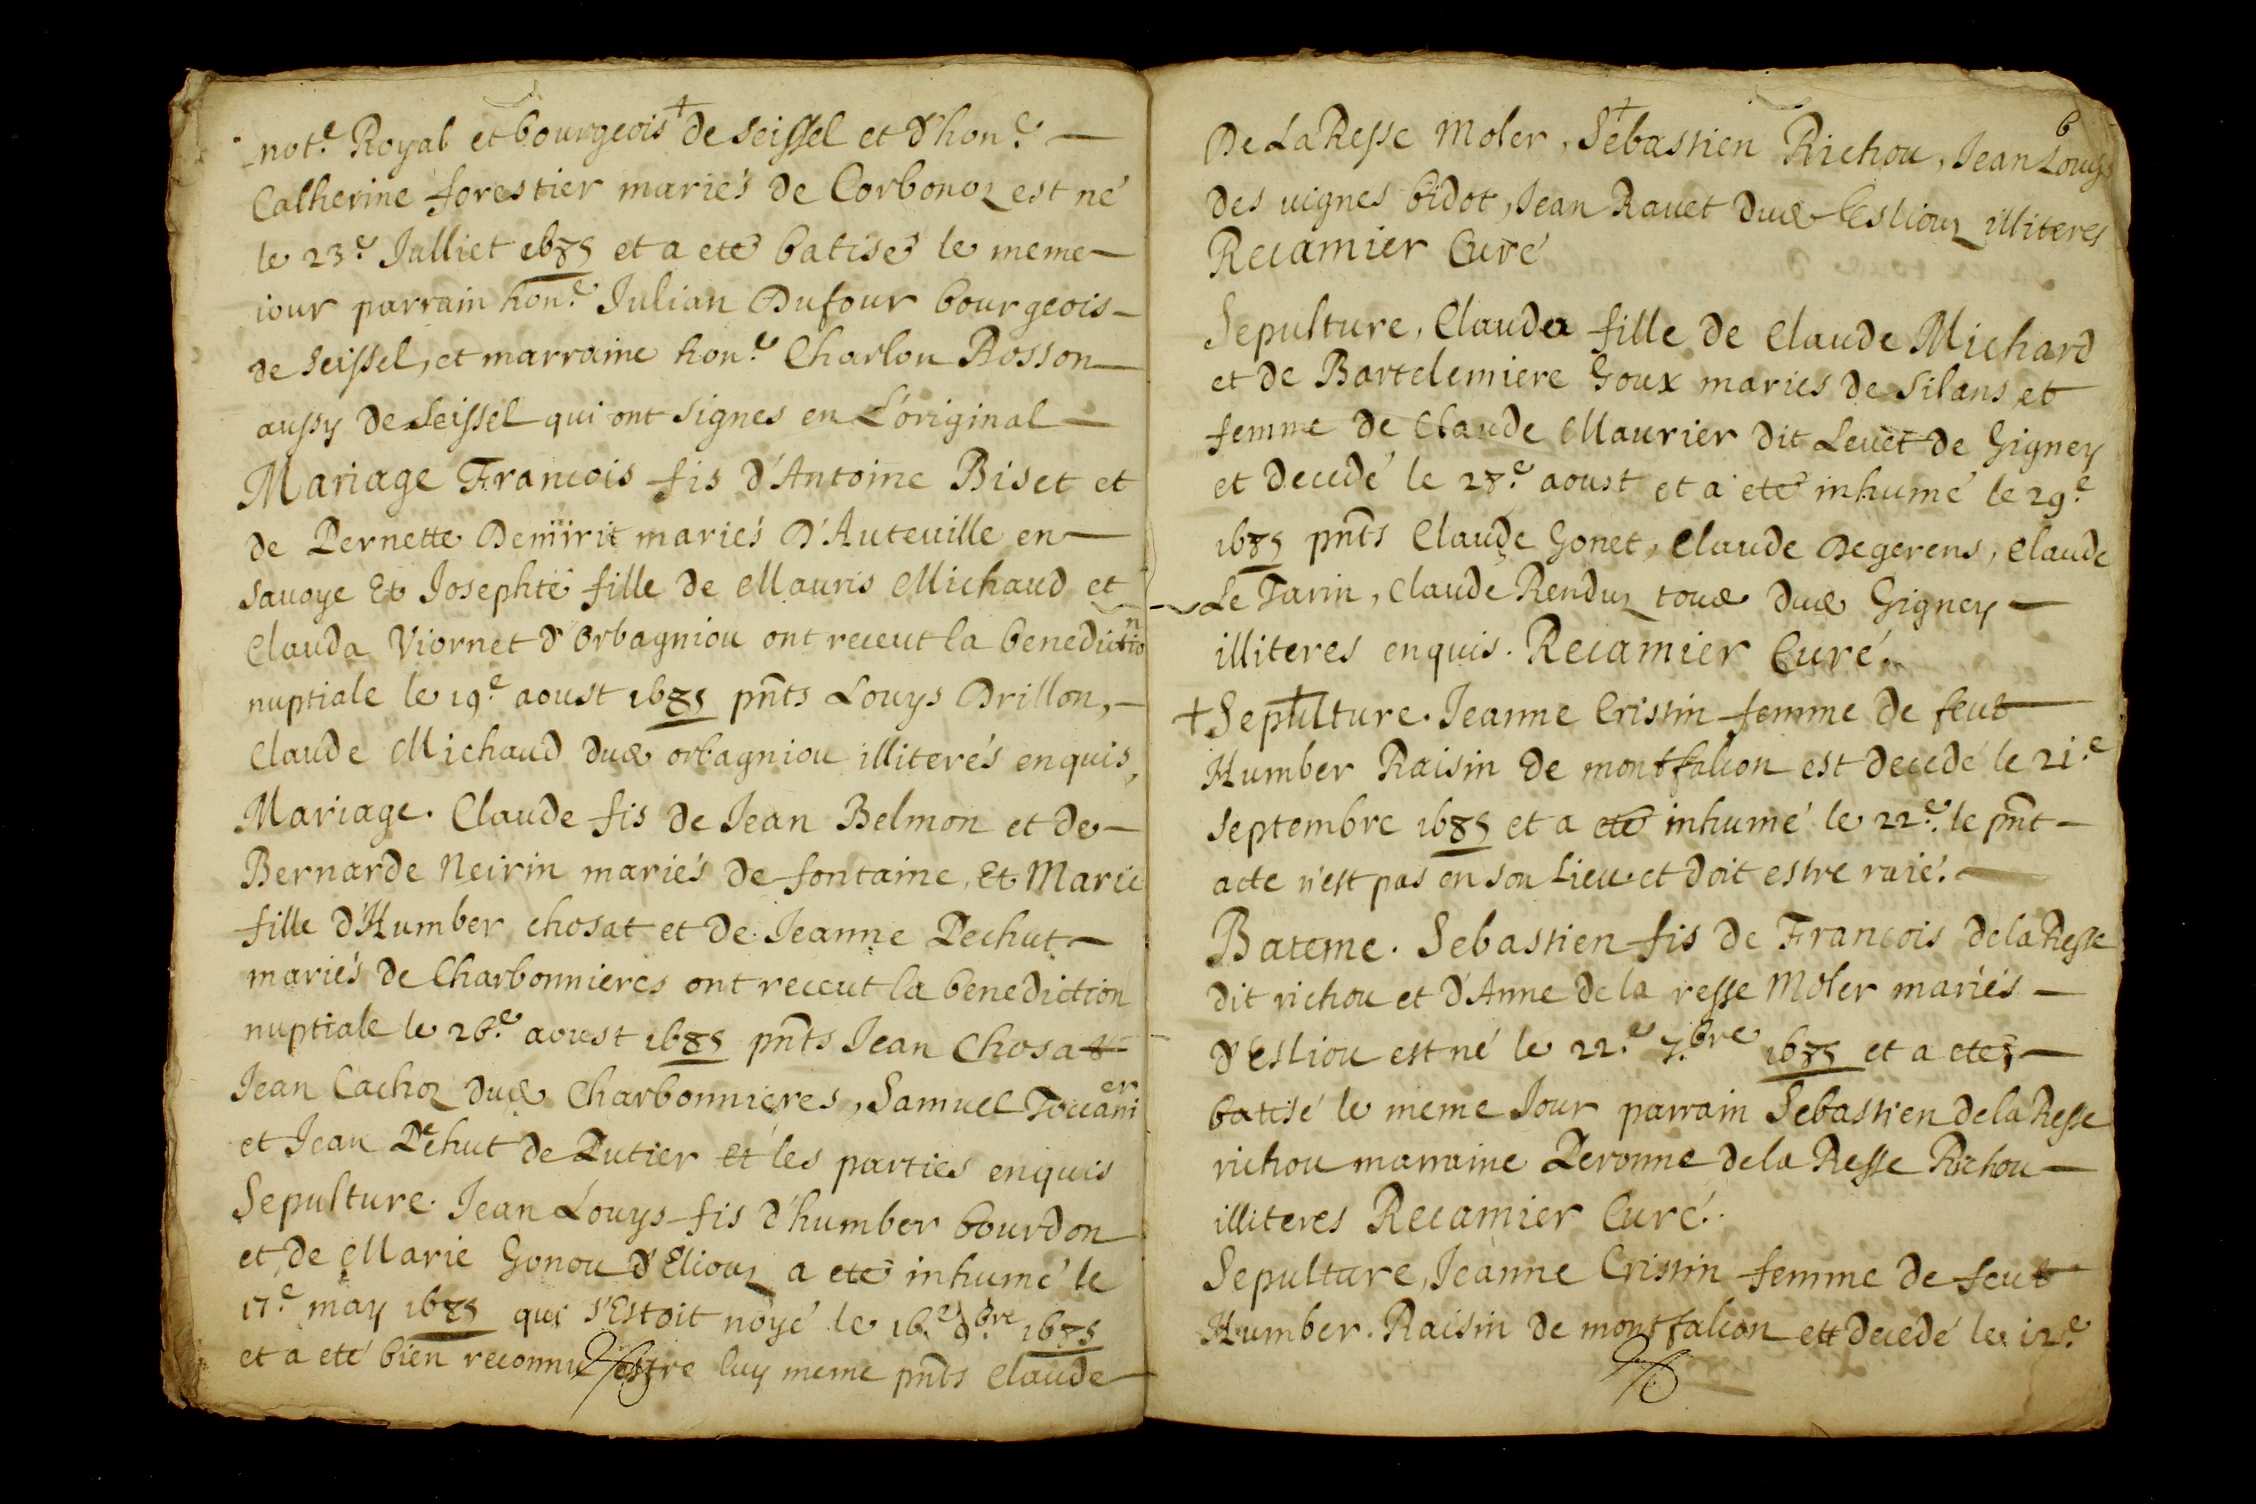 not.e Royal et bourgeois de Seissel et d'hon.e
Catherine forestier mariés de Corbonoz est né
le 23.e Julliet 1685 et a eté batisé le meme
iour parrain hon.e Julian Dufour bourgeois
de Seissel, et marraine hon.e Charlou Bosson
aussy de Seissel qui ont signes en L'original
Mariage Francois fis d'Antoine Biset et
de Pernette mariés D'Auteuille en
Sauoye Et Josephte fille de Mauris Michaud et
Clauda Viornet d'Orbagniou ont receut la benediction
nuptiale le 19.e aoust 1685 pnts Louys Drillon,
Claude Michaud dud orbagniou illiterés enquis,
Mariage. Claude fis de Jean Belmon et de
Bernarde Neirin mariés de fontaine, Et Marie
fille d'Humber chosat et de Jeanne Pechut
mariés de Charbonnieres ont receut la benediction
nuptiale le 26.e aoust 1685 pnts Jean Chosat
Jean Cachoz dud Charbonnieres, Samuel
et Jean Pehut de Putier et les parties enquis
Sepulture. Jean Louys fis d'humber bourdon
et de Marie Gonou d'Eliouz a eté inhumé le
17.e may 1685 qui s'Estoit noyé le 16.e 9.bre 1685
et a eté bien reconnu estre luy meme pnts Claude
6
De La Resse Moler, Sebastien Richou, Jean Louys
des uignes bidot, Jean Rauet dud Esliouz illiteres
Recamier Curé
Sepulture, Clauda fille de Claude Michard
et de Bartelemiere Goux maries de Silans et
femme de Claude Maurier dit Leuet de Gigney
et decedé le 28.e aoust et a eté inhumé le 29.e
1685 pnts Claude Gonet, Claude Degerens, Claude
Le Tarin, Claude Renduz toud dud Gigney
illiteres enquis. Recamier Curé.
+ Sepulture. Jeanne Cristin femme de feut
Humber Raisin de montfalcon est decedé le 21.e
Septembre 1685 et a eté inhumé le 22.e le pnt
acte n'est pas en son Lieu et doit estre raié.
Bateme. Sebastien fis de Francois de la Resse
dit richou et d'Anne de la resse Moler mariés
d'Esliou est né le 22.e 7.bre 1685 et a eté
batisé le meme Jour parrain Sebastien de la Resse
richou marraine Peronne de la Resse Richou
illiteres Recamier Curé.
Sepulture, Jeanne Cristin femme de feut
Humber. Raisin de montfalcon ett decedé le 12.e